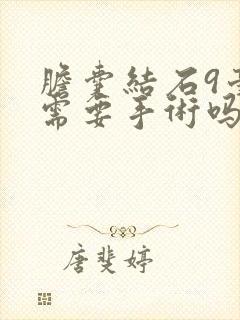 膽囊結石9毫
需要手術吗
唐斐婷